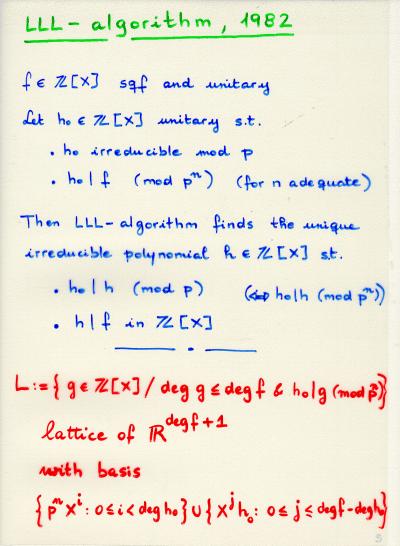 LLL-algorithm, 1982
f ∈ ℤ[X] sqf and unitary
Let h₀ ∈ ℤ[X] unitary s.t.
• h₀ irreducible mod p
• h₀ | f (mod pⁿ) (for n adequate)
Then LLL-algorithm finds the unique
irreducible polynomial h ∈ ℤ[X] s.t.
• h₀ | h (mod p) (⇔ h₀|h (mod pⁿ))
• h | f in ℤ[X]
L := { g ∈ ℤ[X] / deg g ≤ deg f & h₀|g (mod pⁿ)}
lattice of ℝ^{deg f + 1}
with basis
{ pⁿ Xⁱ : 0 ≤ i < deg h₀ } ∪ { Xʲ h₀ : 0 ≤ j ≤ deg f - deg h₀}